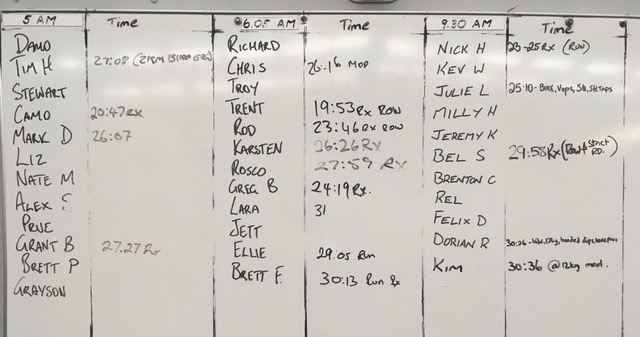 5 AM Time
DAMO
TIM H 27:08
STEWART
CAMO 20:47 RX
MARK D 26:07
LIZ
NATE M
ALEX S
PRUE
GRANT B 27.27 Rx
BRETT P
GRAYSON
6.05 AM Time
RICHARD
CHRIS 26.16 MOD
TROY
TRENT 19:53 Rx ROW
ROD 23:46 RX ROW
KARSTEN 26:26 RX
ROSCO 27:59 RX
GREG B 24:19 Rx.
LARA 31
JETT
ELLIE 29.05 Run
BRETT F. 30:13 Run Rx
9.30 AM Time
NICK H 23-25 RX (RUN)
KEV W
JULIE L 25:10 - BIKE,
MILLY H
JEREMY K
BEL S 29:58 Rx (Row + Strict
BRENTON C
REL
FELIX D
DORIAN R 30:26 - bike, 12kg, banded dips,
KIM 30:36 @12kg